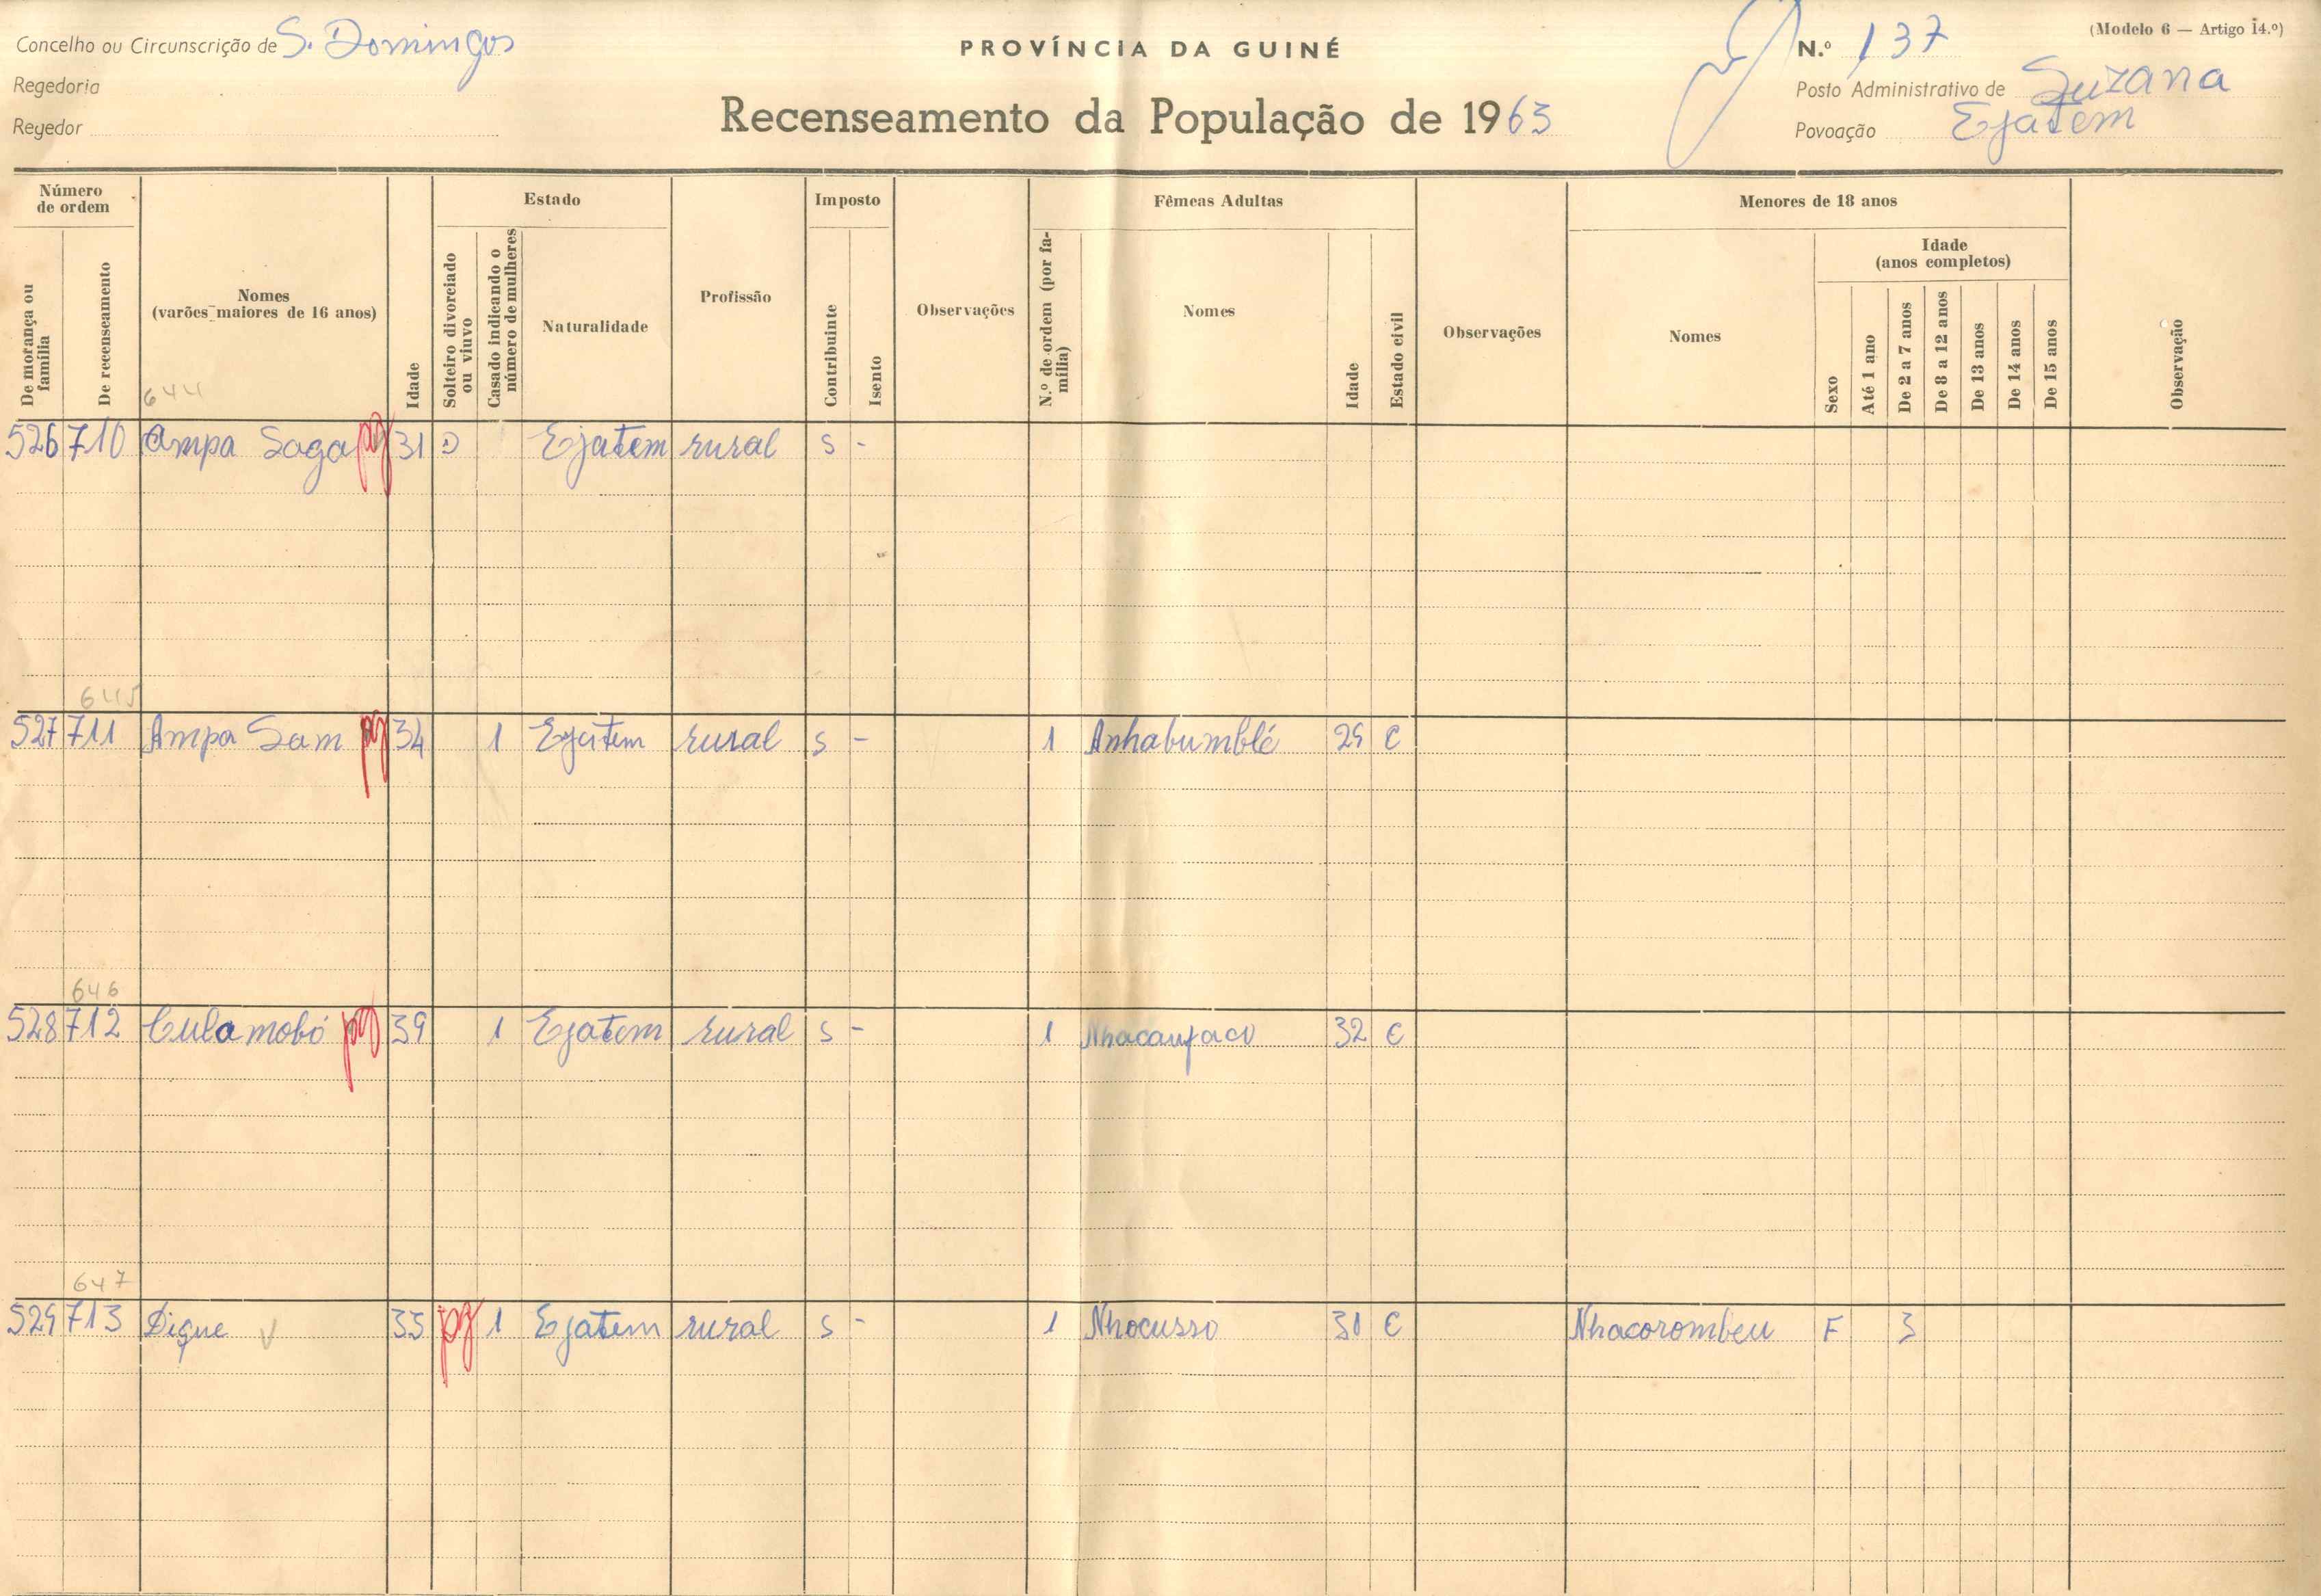 Concelho ou Circunscrição de S. Domingos
Regedoria
Regedor
PROVÍNCIA DA GUINÉ
Recenseamento da População de 1963
(Modelo 6 — Artigo 14.º)
N.º 137
Posto Administrativo de Suzana
Povoação Ejatem
Número de ordem
De morança ou família
De recenseamento
Nomes
(varões maiores de 16 anos)
Idade
Estado
Solteiro divorciado ou viuvo
Casado indicando o número de mulheres
Naturalidade
Profissão
Imposto
Contribuinte
Isento
Observações
Fêmeas Adultas
N.º de ordem (por família)
Nomes
Idade
Estado civil
Observações
Menores de 18 anos
Nomes
Sexo
Idade
(anos completos)
Até 1 ano
De 2 a 7 anos
De 8 a 12 anos
De 13 anos
De 14 anos
De 15 anos
Observação
644
526 710 Ampa Saga pg 31 D Ejatem rural s -
645
527 711 Ampa Sam pg 34 1 Ejatem rural s - 1 Anhabumblé 29 C
646
528 712 Culamobó pg 39 1 Ejatem rural s - 1 32 C
647
529 713 Digue 35 pg 1 Ejatem rural s - 1 Nhocusso 31 C Nhacorombeu F 3